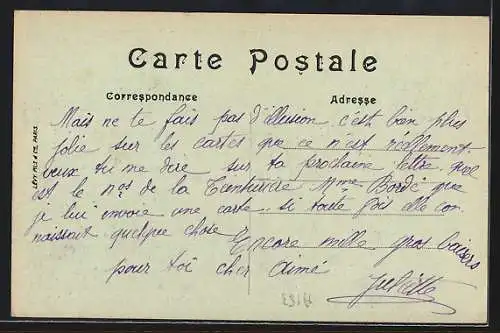 Carte Postale
Correspondance
Adresse
LÉVY FILS & CIE, PARIS
Mais ne te fais pas d'illusion c'est bien plus
jolie sur les cartes que ce n'est réellement
veux tu me dire sur ta prochaine lettre quel
est le nos de la Teinturière Mme Bordé que
je lui envoie une carte si toute fois elle con
naissait quelque chose Encore mille gros baisers
pour toi cher aimé
Juliette